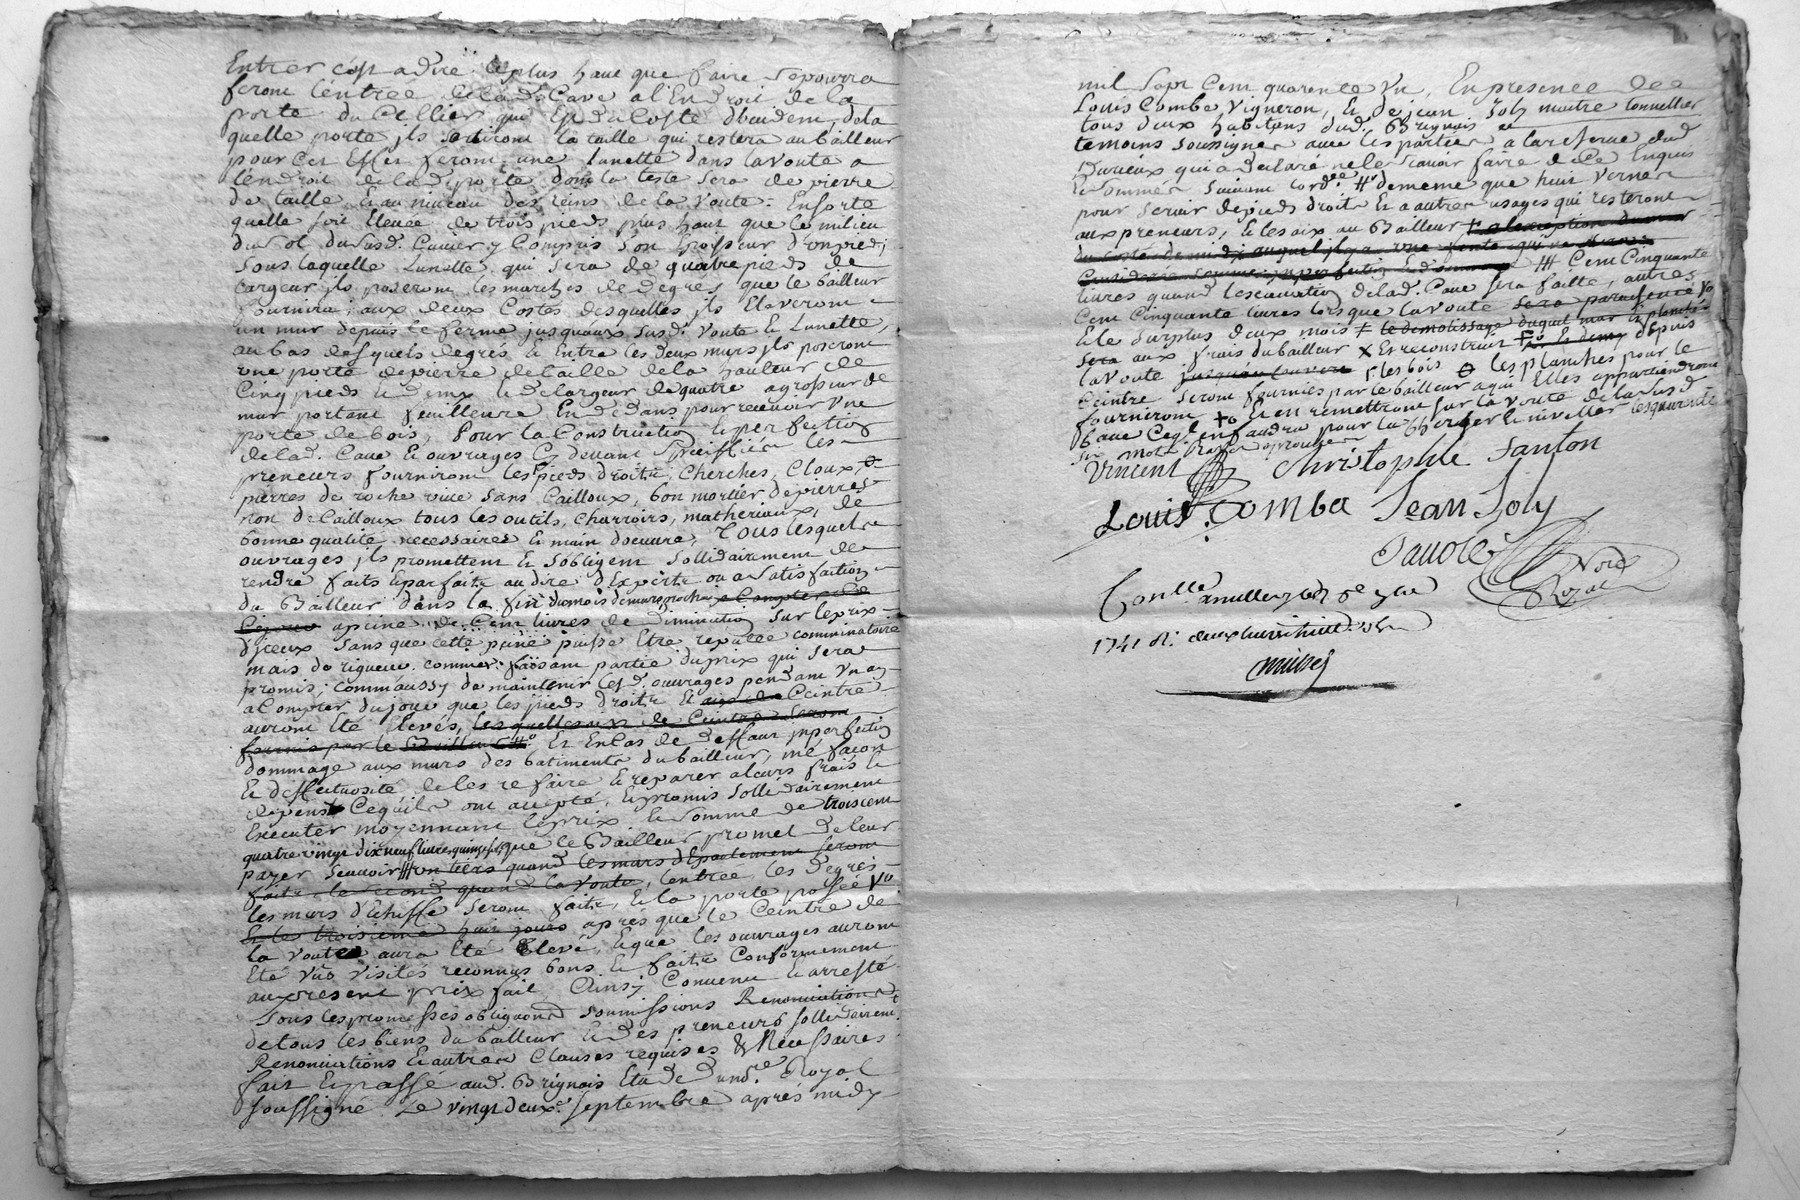 Entrer c'est adire le plus haut que faire se pourra
feront l'entrée de lad. Cave a l'Endroit de la
porte du Cellier qui Est du Costé d'bau dem, de la
quelle porte jls sortiront la taille qui restera au bailleur
pour Cet Effet feront une lunette dans la voute a
l'endroit de lad. porte dont la teste sera de pierre
de taille Et au niveau des reins de la voute : Ensorte
quelle soit Elevée de trois pieds plus haut que le milieu
du sol du susd. Cuvier y Compris son Epoisseur d'un pied ;
sous laquelle Lunette, qui sera de quatre pieds de
largeur jls poseront les marches de degrés que le bailleur
fournira ; aux deux Costés desquelles jls Eleveront
un mur depuis le ferme jusquaux susd. voute Et Lunette,
au bas desquels degrés Et Entre les deux murs jls poseront
une porte de pierre de taille de la hauteur de
Cinq pieds Et demy Et de largeur de quatre a grosseur de
mur portant feuilleure En dedans pour recevoir une
porte de bois, Pour la Construction Et perfection
de lad. Cave Et ouvrages Cy devant specifiés les
preneurs fourniront les pieds droits, cherches, Cloux,
pierres de roche vive sans Cailloux, bon mortier de pierres
non de Cailloux tous les outils, charroirs, matheriaux, de
bonne qualité necessaires Et main doeuvre, Tous lesquels
ouvrages jls promettent Et s'obligent sollidairement de
rendre faits Et parfaits au dire d'Experts ou a satisfaction
du Bailleur dans la fin du mois de mars prochain a Compter de
Cejour apeine de Cent livres de diminution sur le prix
d'jceux sans que cette peine puisse Etre reputée comminatoire
mais de rigueur comme faisant partie du prix qui sera
promis ; comm'aussy de maintenir lesd. ouvrages pendant un an
a Compter du jour que les pieds droits Et aix de Ceintre
auront Eté Elevés, lesquelles aix de Ceintre seront
fournis par le Bailleur #°, Et En Cas de deffaut jnperfection
dommage aux murs des batiments du bailleur, mé façon
Et deffectuosité de les refaire Et reparer a leurs frais Et
depens Ce qu'ils ont accepté, Et promis sollidairement
Executer moyennant le prix Et somme de trois cent
quatre vingt dix neuf livres quinze sols que le Bailleur promet de leur
payer scavoir # un tiers quand les murs d'Epaulement seront
faits, le second quand la voute, l'entrée les degrés
les murs d'Echiffe seront faits, Et la porte posée V°
Et le troisieme huit jours apres que le Ceintre de
la voute aura Eté Elevé, Et que les ouvrages auront
Eté vûs visités reconnus bons Et faits Conformement
au present prix fait Ainsy Convenu Et arresté
sous les promesses obligaons soumissions Renonciations
de tous les biens du bailleur Et des preneurs sollidairemt.
Renonciations Et autres Clauses requises & Necessaires
fait Et passé aud. Brignais Etude dud. ne. Royal
soussigné Le vingt deuxe. septembre après midy
mil sept Cent quarente Un, En presence de
Louis Combe Vigneron, Et de jean Joly maitre tonnellier
tous deux habitans dud. Brignais
temoins soussignes avec les parties a la reserve dud
Durieux qui a declaré ne le scavoir faire de Ce Enquis
Et sommés suivant l'ord.ce #° de meme que huit vernes
pour servir de pieds droits Et a autres usages qui resteront
aux preneurs, Et les aix au Bailleur + a l'exception du mur
du costé de midi auquel jl y a une fente qui ne sera
Considerée comme jnperfection Et dommage ## Cent Cinquante
livres quand l'escavation de lad. Cave sera faitte, autres
Cent Cinquante livres lorsque la voute sera parachevée V°
Et le surplus deux mois + le demolissage duquel mur Et planché
sera aux frais du bailleur X Et reconstruit +° Et demy depuis
la voute jusqu'au couvert r les bois ⊖ les planches pour le
Ceintre seront fournies par le bailleur a qui Elles appartiendront
fourniront +o Et en remettront sur la voute de la susd
Cave Ce qil en faudra pour la Charger Et niveller lesquarente
six mots Rayés aprouvés
Vincent Christophle Santon
Louis Comba Jean Joly
Sauole Nore
Royal
Conlle
1741 R. deux livres huit sols